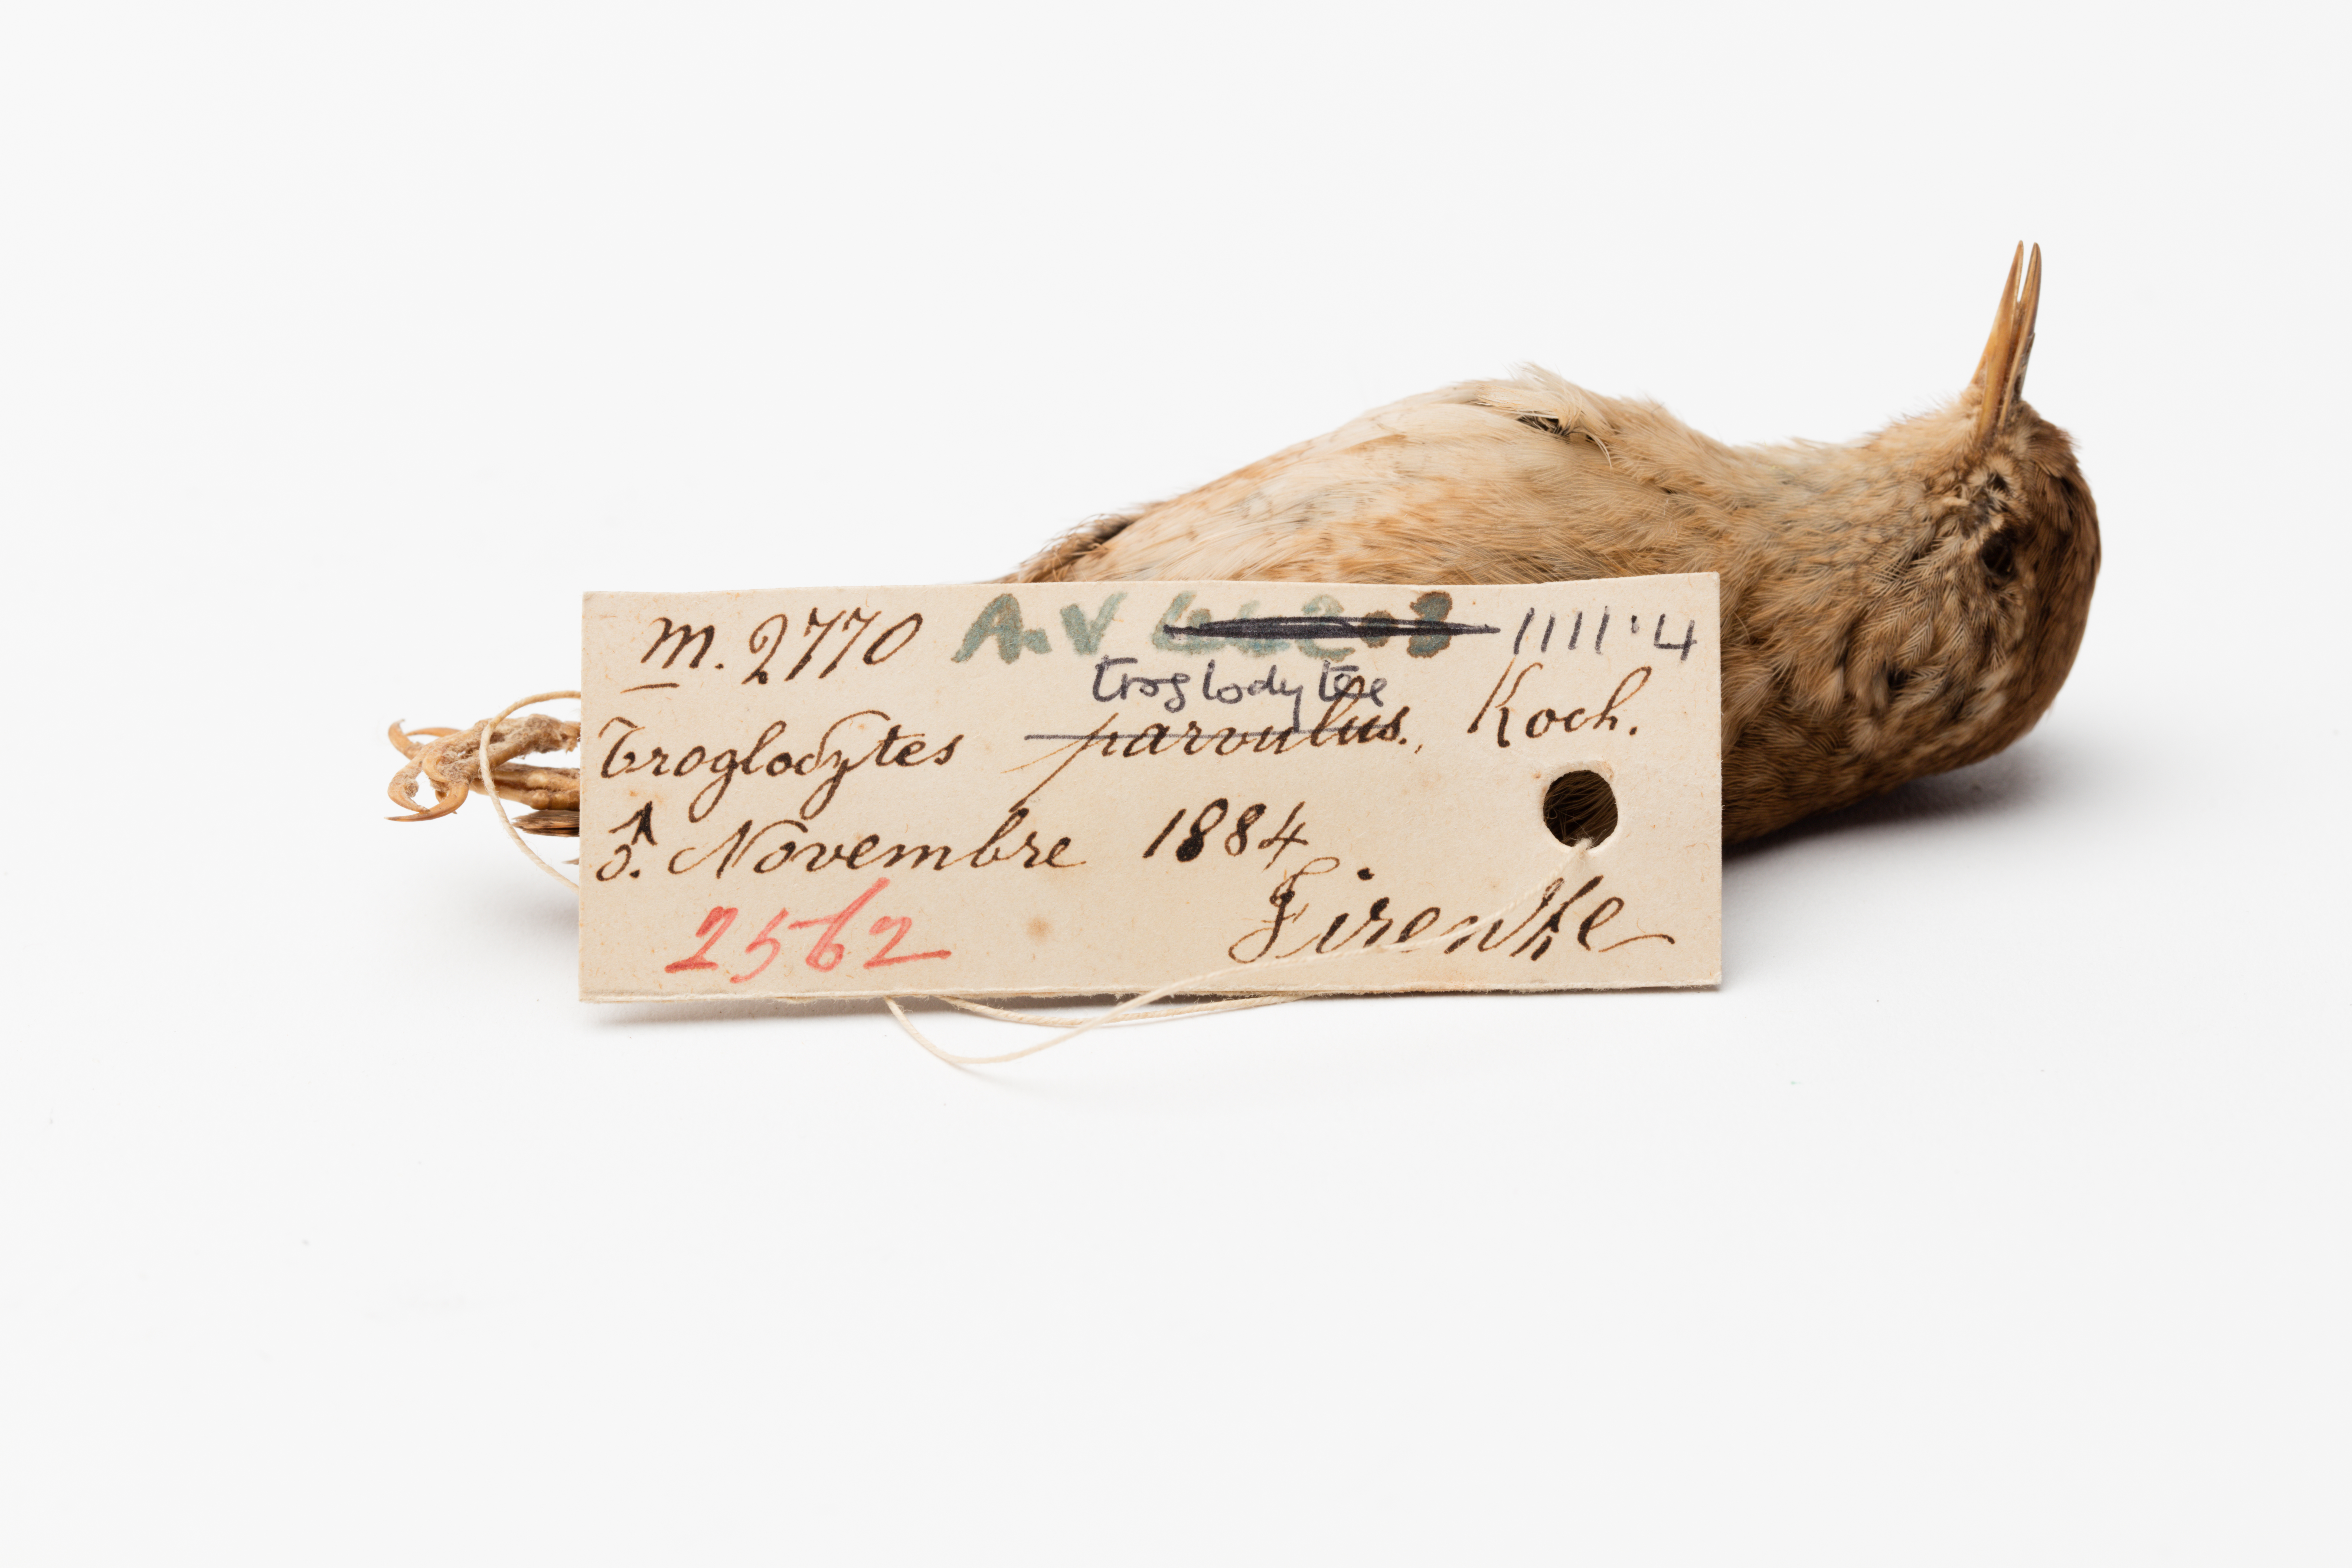 m. 2770 A.V 1111·4
troglodytes
Troglodytes parvulus., Koch.
♂. Novembre 1884
Firenze
2562